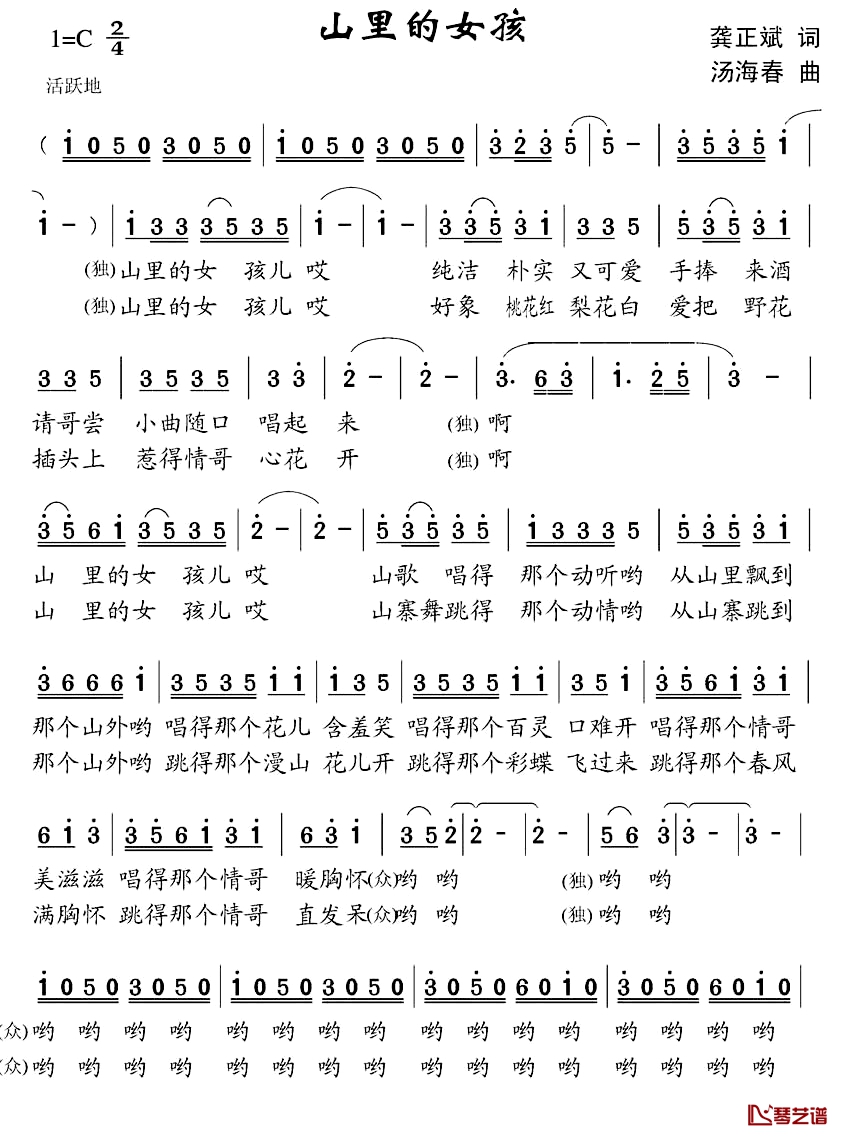 山里的女孩
1=C 2/4
龚正斌 词
汤海春 曲
活跃地
( 1 0 5 0 3 0 5 0 | 1 0 5 0 3 0 5 0 | 3 2 3 5 | 5 - | 3 5 3 5 1 |
1 - ) | 1 3 3 3 5 3 5 | 1 - | 1 - | 3 3 5 3 1 | 3 3 5 | 5 3 5 3 1 |
(独)山里的女 孩儿 哎 纯洁 朴实 又可爱 手捧 来酒
(独)山里的女 孩儿 哎 好象 桃花红 梨花白 爱把 野花
3 3 5 | 3 5 3 5 | 3 3 | 2 - | 2 - | 3· 6 3 | 1· 2 5 | 3 - |
请哥尝 小曲随口 唱起 来 (独) 啊
插头上 惹得情哥 心花 开 (独) 啊
3 5 6 1 3 5 3 5 | 2 - | 2 - | 5 3 5 3 5 | 1 3 3 3 5 | 5 3 5 3 1 |
山 里的女 孩儿 哎 山歌 唱得 那个动听哟 从山里飘到
山 里的女 孩儿 哎 山寨舞跳得 那个动情哟 从山寨跳到
3 6 6 6 1 | 3 5 3 5 1 1 | 1 3 5 | 3 5 3 5 1 1 | 3 5 1 | 3 5 6 1 3 1 |
那个山外哟 唱得那个花儿 含羞笑 唱得那个百灵 口难开 唱得那个情哥
那个山外哟 跳得那个漫山 花儿开 跳得那个彩蝶 飞过来 跳得那个春风
6 1 3 | 3 5 6 1 3 1 | 6 3 1 | 3 5 2 | 2 - | 2 - | 5 6 3 | 3 - | 3 - |
美滋滋 唱得那个情哥 暖胸怀(众)哟 哟 (独) 哟 哟
满胸怀 跳得那个情哥 直发呆(众)哟 哟 (独) 哟 哟
1 0 5 0 3 0 5 0 | 1 0 5 0 3 0 5 0 | 3 0 5 0 6 0 1 0 | 3 0 5 0 6 0 1 0 |
(众) 哟 哟 哟 哟 哟 哟 哟 哟 哟 哟 哟 哟 哟 哟 哟 哟
(众) 哟 哟 哟 哟 哟 哟 哟 哟 哟 哟 哟 哟 哟 哟 哟 哟
琴艺谱